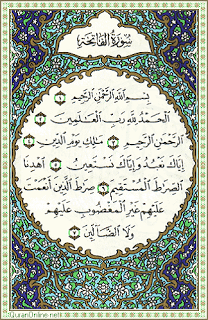 سُورَةُ الفَاتِحَةِ
بِسْمِ اللَّهِ الرَّحْمَٰنِ الرَّحِيمِ ١
الْحَمْدُ لِلَّهِ رَبِّ الْعَالَمِينَ ٢
الرَّحْمَٰنِ الرَّحِيمِ ٣ مَالِكِ يَوْمِ الدِّينِ ٤
إِيَّاكَ نَعْبُدُ وَإِيَّاكَ نَسْتَعِينُ ٥ اهْدِنَا
الصِّرَاطَ الْمُسْتَقِيمَ ٦ صِرَاطَ الَّذِينَ أَنْعَمْتَ
عَلَيْهِمْ غَيْرِ الْمَغْضُوبِ عَلَيْهِمْ
وَلَا الضَّالِّينَ ٧
QuranOnline.net